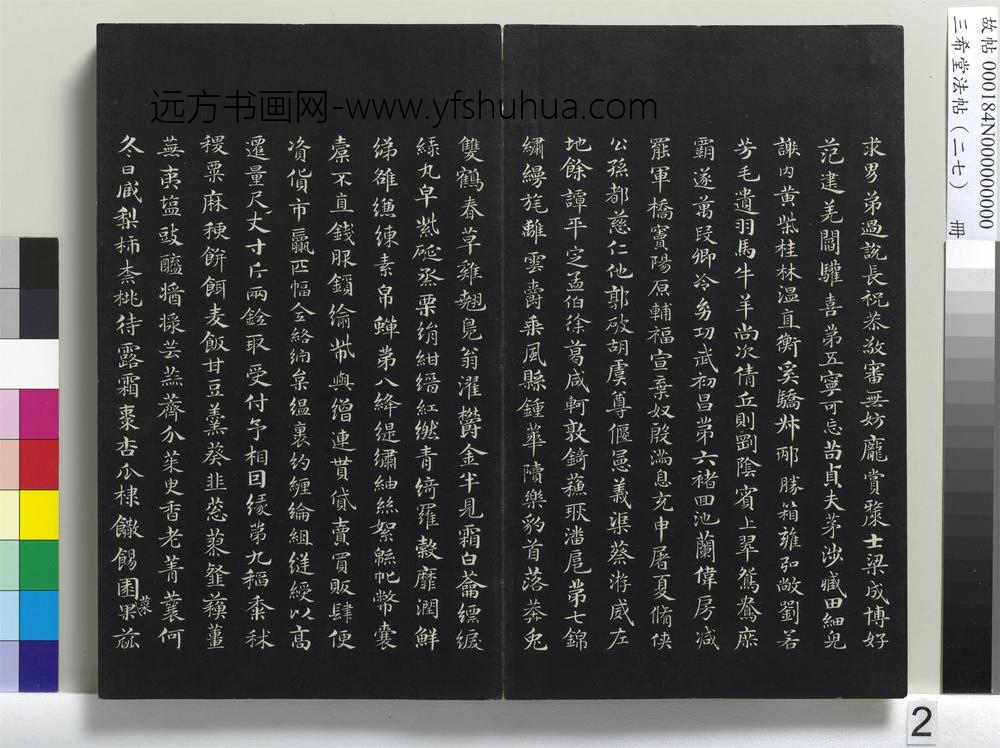 远方书画网-www.yfshuhua.com
故帖000184N000000000
三希堂法帖（二七） 冊
求男弟過說長祝恭敬審無妨龐賞士梁成博好
范建羌閻驩喜第五寧可忘苟貞夫茅涉臧田細兒
謝內黃柴桂林溫直衡奚驕叔邴勝箱雍弘敞劉若
芳毛遺羽馬牛羊尚次倩丘則剛陰賓上翠鴛鴦庶
霸遂萬段卿冷幼功武初昌第六褚回池蘭偉房減
罷軍橋竇陽原輔福宣棄奴殷滿息充申屠夏脩俠
公孫都慈仁他郭破胡虞尊偃憲義渠蔡游威左
地餘譚平定孟伯徐葛咸軻敦錡蘇耿潘扈第七錦
繡縵旄離雲爵乘風縣鍾華隤樂豹首落莽兔
雙鶴春草雞翹鳧翁濯鬱金半見霜白䔥縹綟
綠丸皁紫硟蒸栗絹紺縉紅繎青綺羅縠靡潤鮮
綈雒縑練素帛蟬第八絳緹繡紬絲絮綿帊幣囊
橐不直錢服鎖緰㡜與繒連貰貸賣買販肆便
資貨市贏匹幅全絡紵枲縕裹約纏綸組縫綬以高
遷量尺丈寸斤兩銓取受付予相因緣第九稻黍秫
稷粟麻秔餅餌麦飯甘豆羹葵韭葱蓼韰蘇薑
蕪荑塩豉醯醬漿芸蒜薺介茱臾香老菁蘘何
冬日藏梨柿柰桃待露霜棗杏瓜棣饊餳園菜果蓏
2